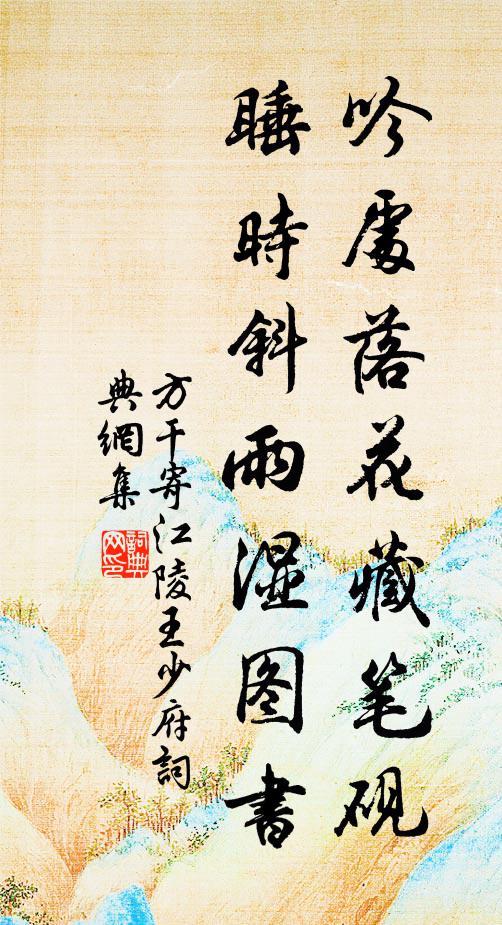 吟處落花藏笔砚
睡時斜雨湿图書
方干寄江陵王少府詞
典網集
詞典網印